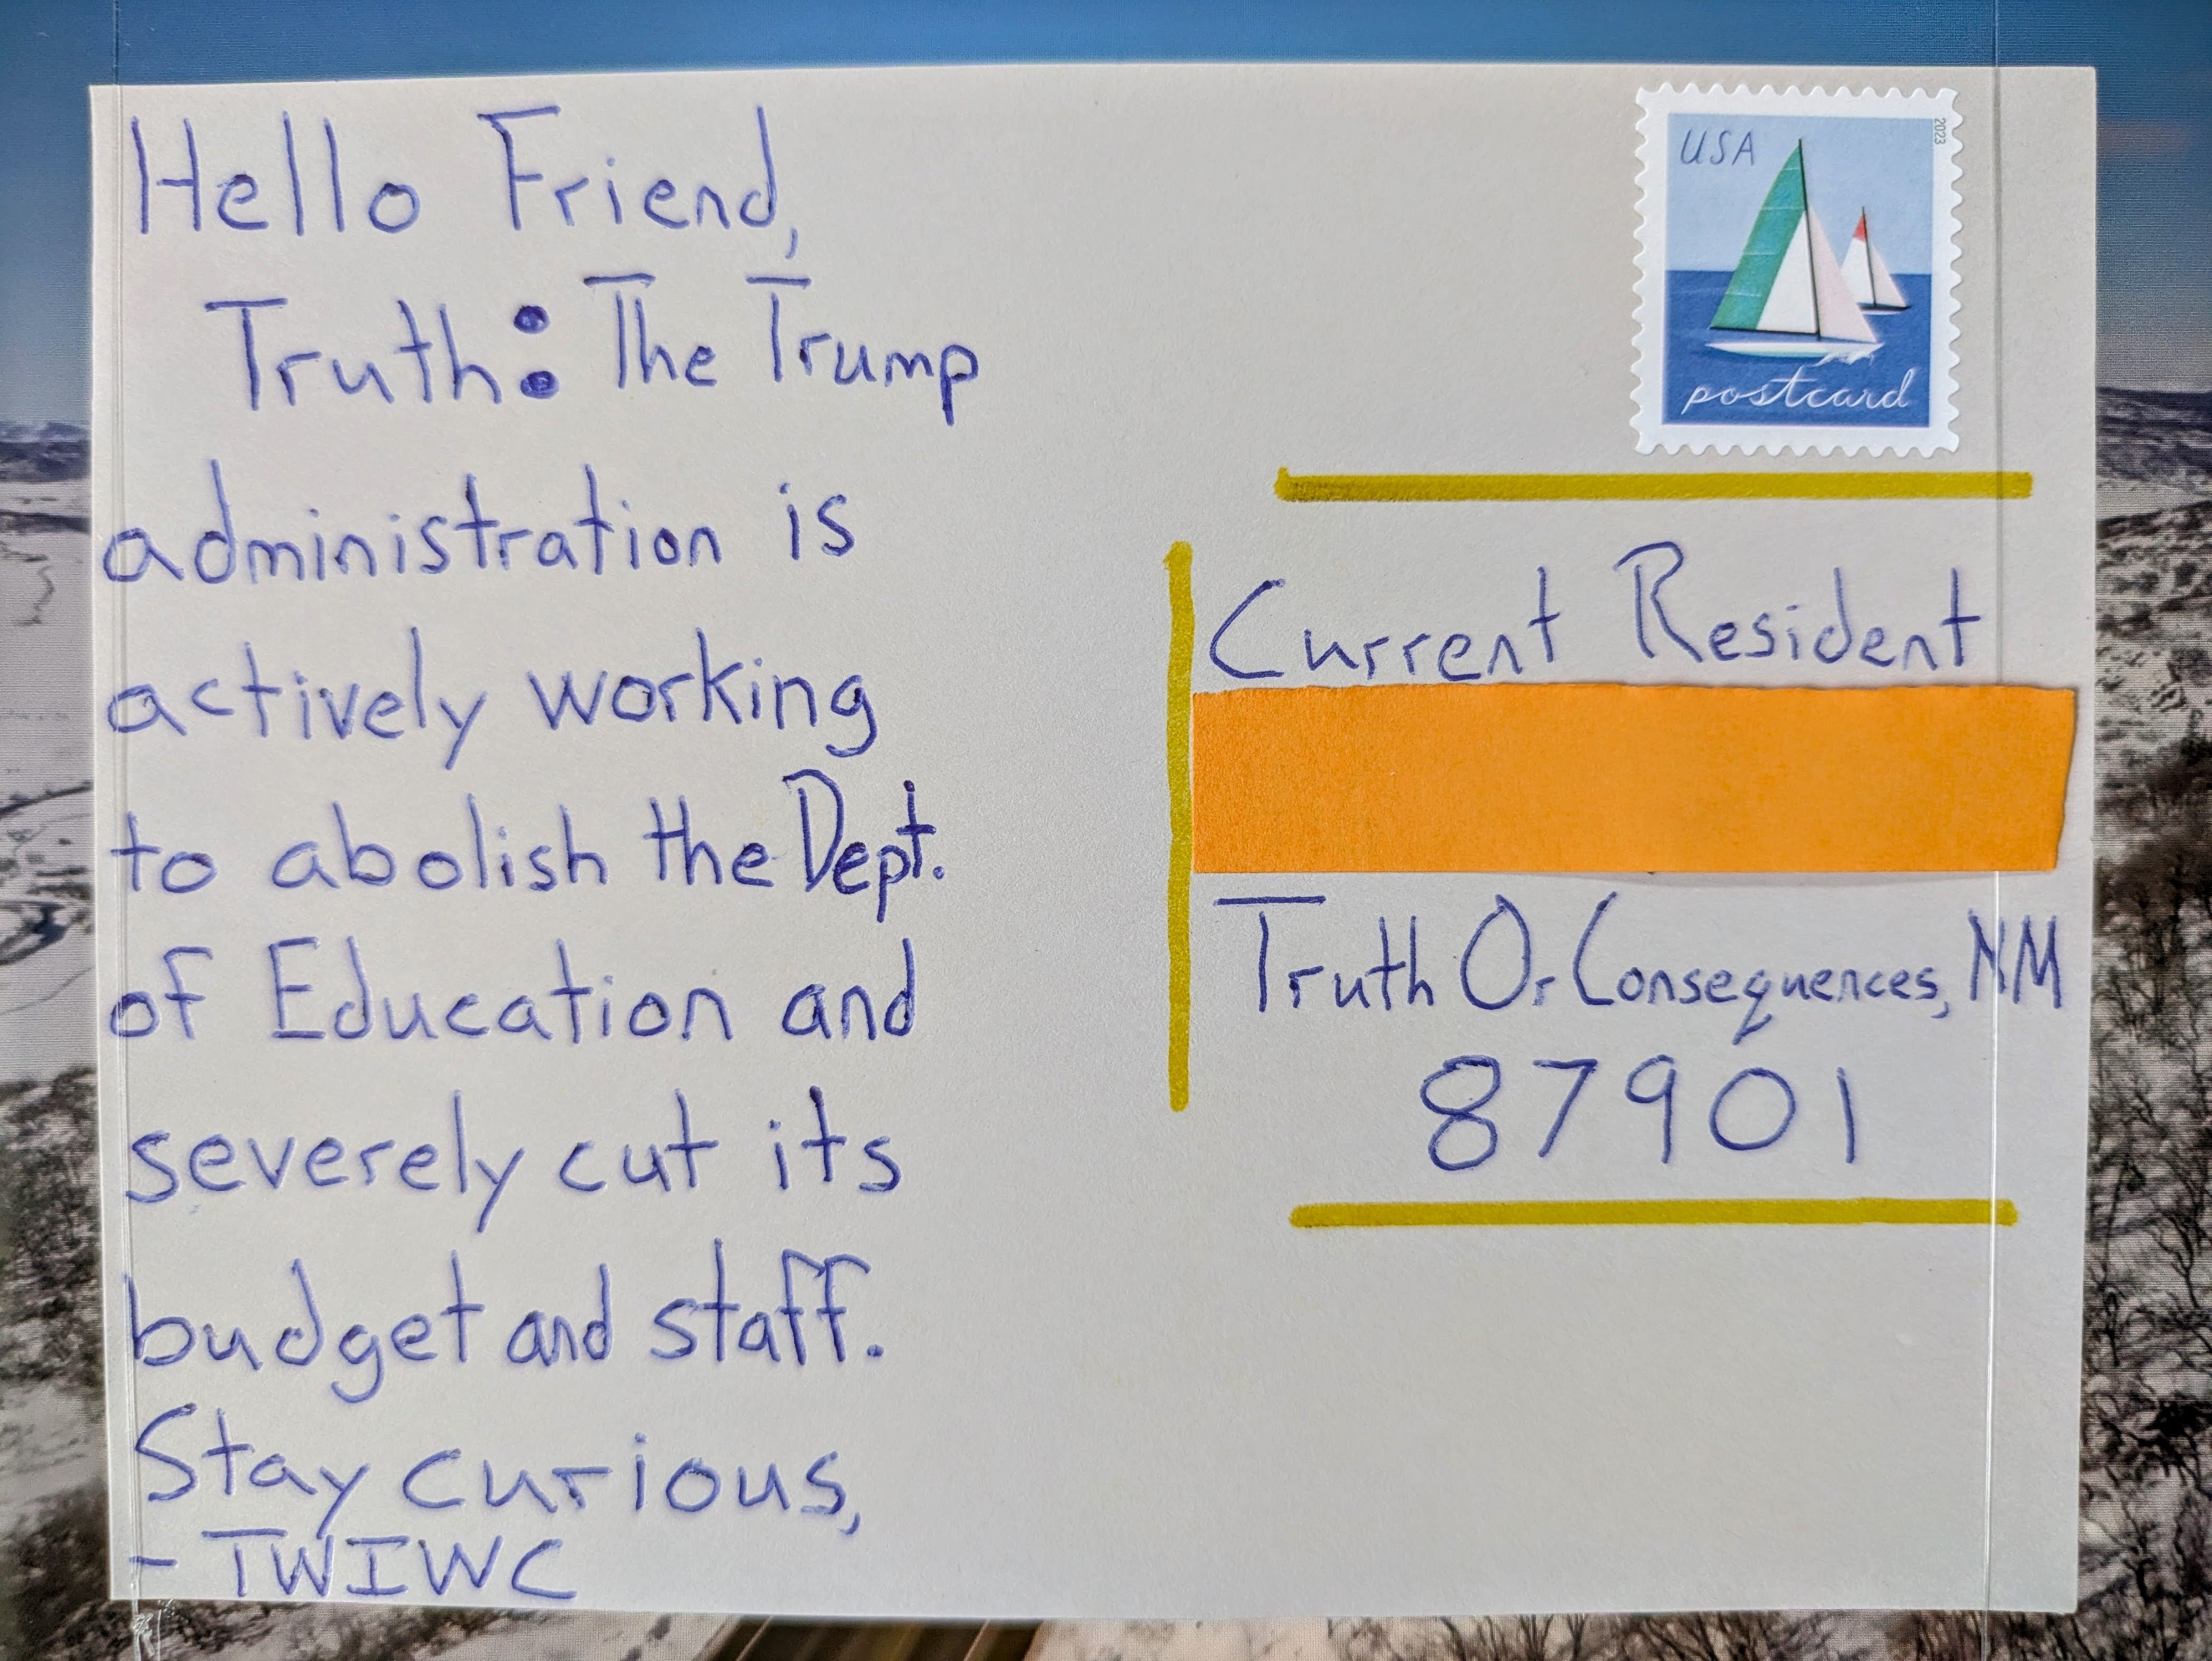 Hello Friend,
Truth: The Trump
administration is
actively working
to abolish the Dept.
of Education and
severely cut its
budget and staff.
Stay curious,
- TWIWC
USA
2023
postcard
Current Resident
Truth Or Consequences, NM
87901